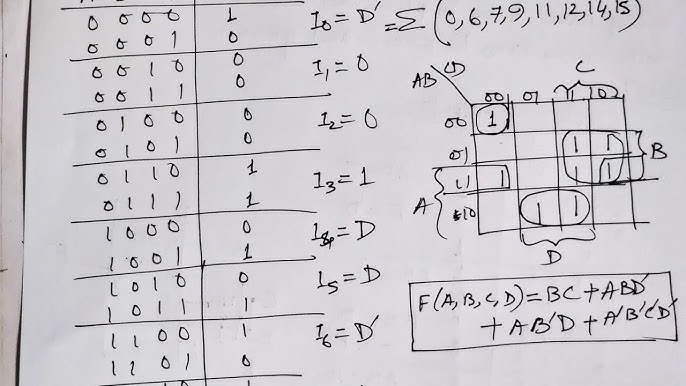 0 0 0 0 1
0 0 0 1 0
0 0 1 0 0
0 0 1 1 0
0 1 0 0 0
0 1 0 1 0
0 1 1 0 1
0 1 1 1 1
1 0 0 0 0
1 0 0 1 1
1 0 1 0 0
1 0 1 1 1
1 1 0 0 1
1 1 0 1 0
I0 = D'
I1 = 0
I2 = 0
I3 = 1
I4 = D
I5 = D
I6 = D'
= Σ (0,6,7,9,11,12,14,15)
C
AB CD
00 01 11 10
00 1
01 1 1
11 1 1 1
10 1 1
A
B
D
F(A,B,C,D) = BC + ABD'
+ AB'D + A'B'C'D'